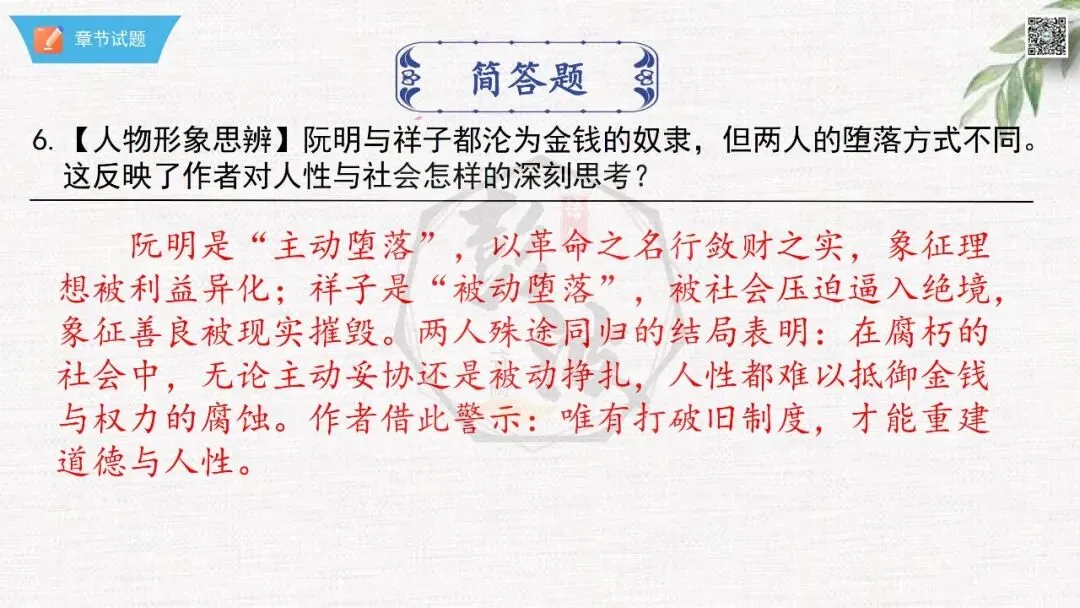 章节试题
简答题
6.【人物形象思辨】阮明与祥子都沦为金钱的奴隶，但两人的堕落方式不同。
这反映了作者对人性与社会怎样的深刻思考？
阮明是“主动堕落”，以革命之名行敛财之实，象征理
想被利益异化；祥子是“被动堕落”，被社会压迫逼入绝境，
象征善良被现实摧毁。两人殊途同归的结局表明：在腐朽的
社会中，无论主动妥协还是被动挣扎，人性都难以抵御金钱
与权力的腐蚀。作者借此警示：唯有打破旧制度，才能重建
道德与人性。